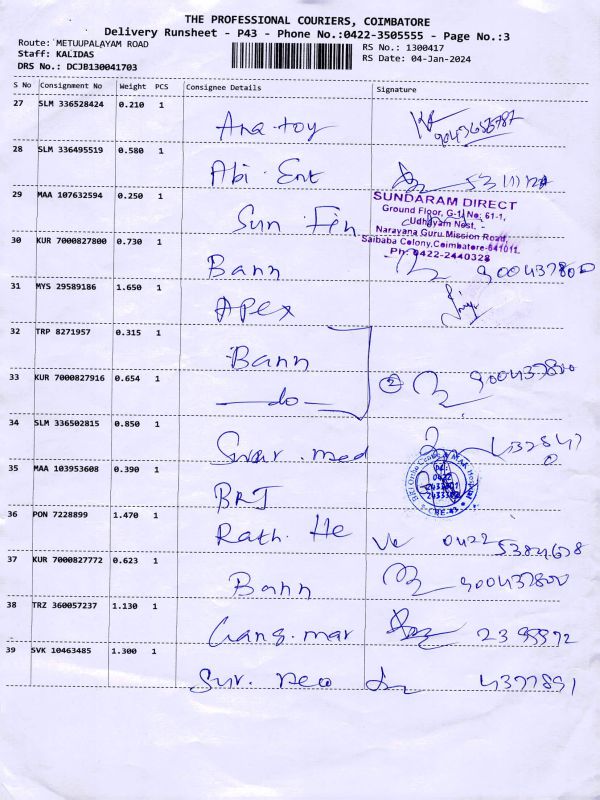 THE PROFESSIONAL COURIERS, COIMBATORE
Delivery Runsheet - P43 - Phone No.:0422-3505555 - Page No.:3
Route: METUUPALAYAM ROAD RS No.: 1300417
Staff: KALIDAS RS Date: 04-Jan-2024
DRS No.: DCJB130041703
S No Consignment No Weight PCS Consignee Details Signature
27 SLM 336528424 0.210 1
28 SLM 336495519 0.580 1 Abi. Ent
29 MAA 107632594 0.250 1 Sun Fin
SUNDARAM DIRECT
Ground Floor, G-1, No: 61-1,
Udhayam Nest,
Narayana Guru Mission Road,
Saibaba Colony, Coimbatore-641011.
Ph: 0422-2440328
30 KUR 7000827800 0.730 1 Bann 900437800
31 MYS 29589186 1.650 1 Apex
32 TRP 8271957 0.315 1 Bann
33 KUR 7000827916 0.654 1 —do— 2 900437800
34 SLM 336502815 0.850 1
35 MAA 103953608 0.390 1
36 PON 7228899 1.470 1 Rath. He 0422
37 KUR 7000827772 0.623 1 Bann 900437800
38 TRZ 360057237 1.130 1
39 SVK 10463485 1.300 1